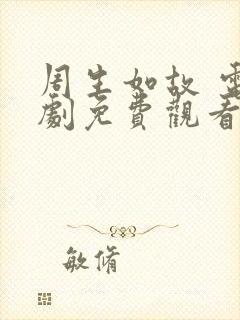 周生如故 電
劇免費觀看
敏脩